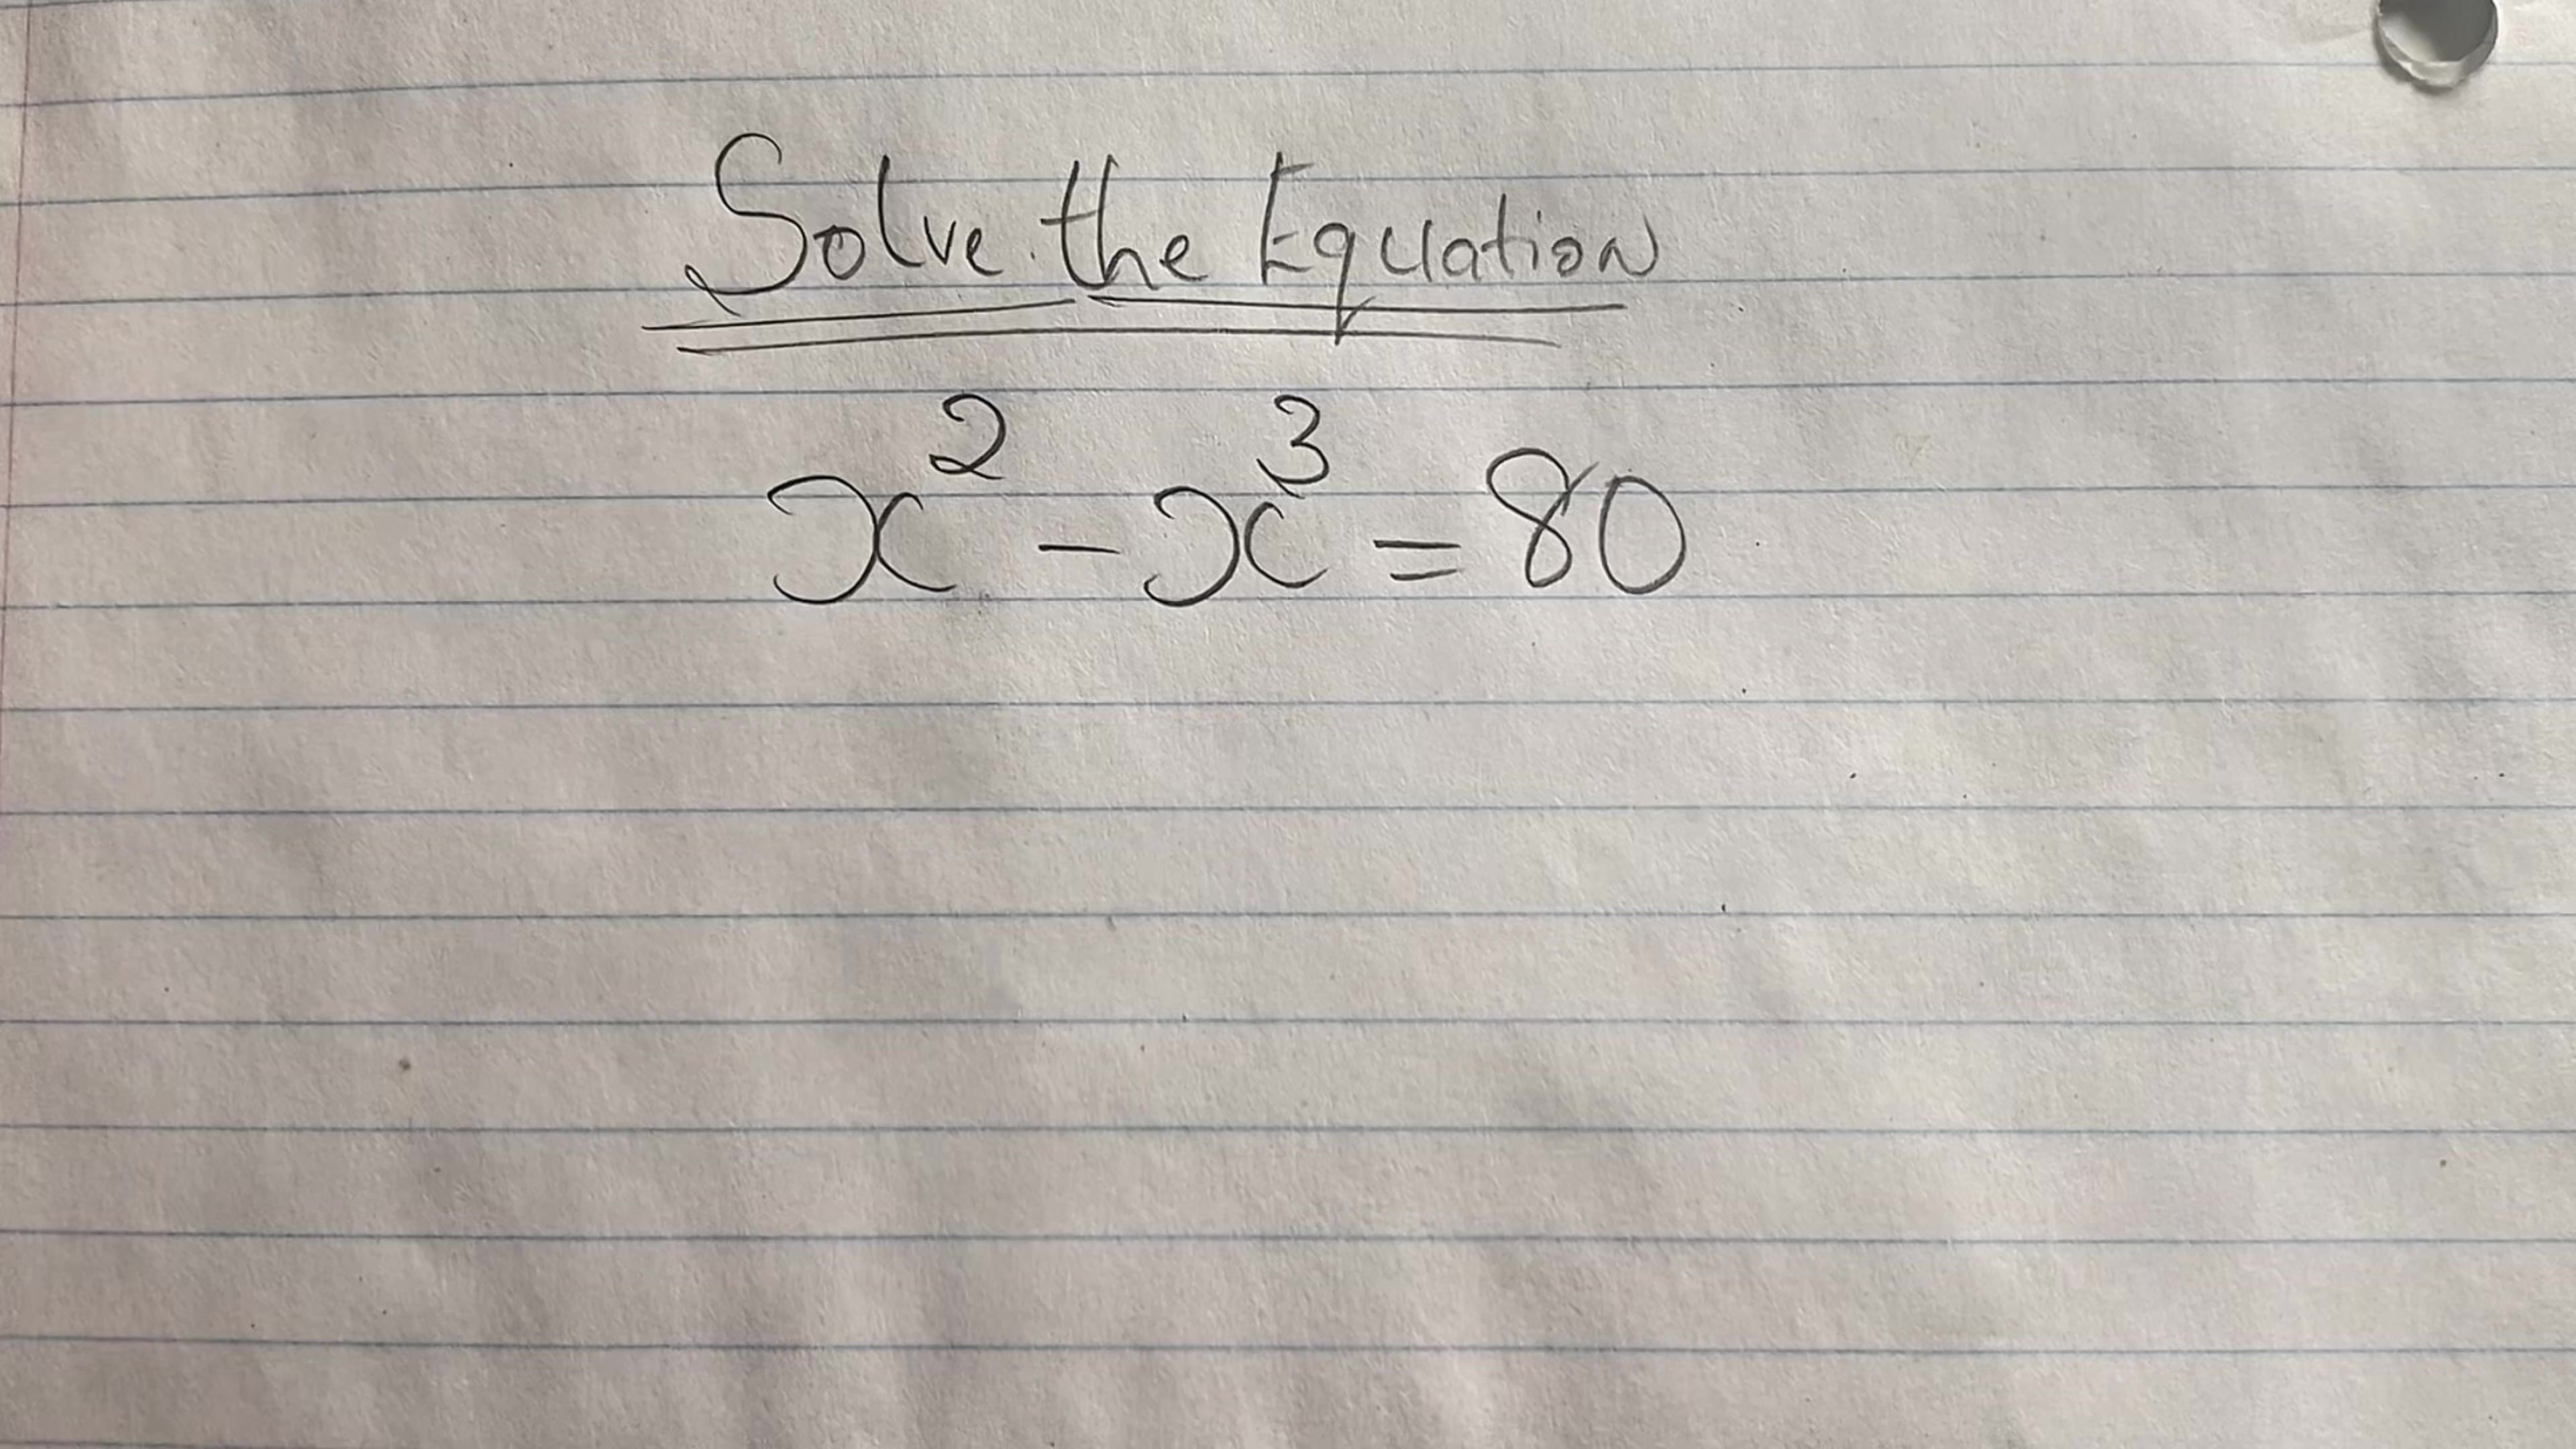 Solve the Equation
x² - x³ = 80